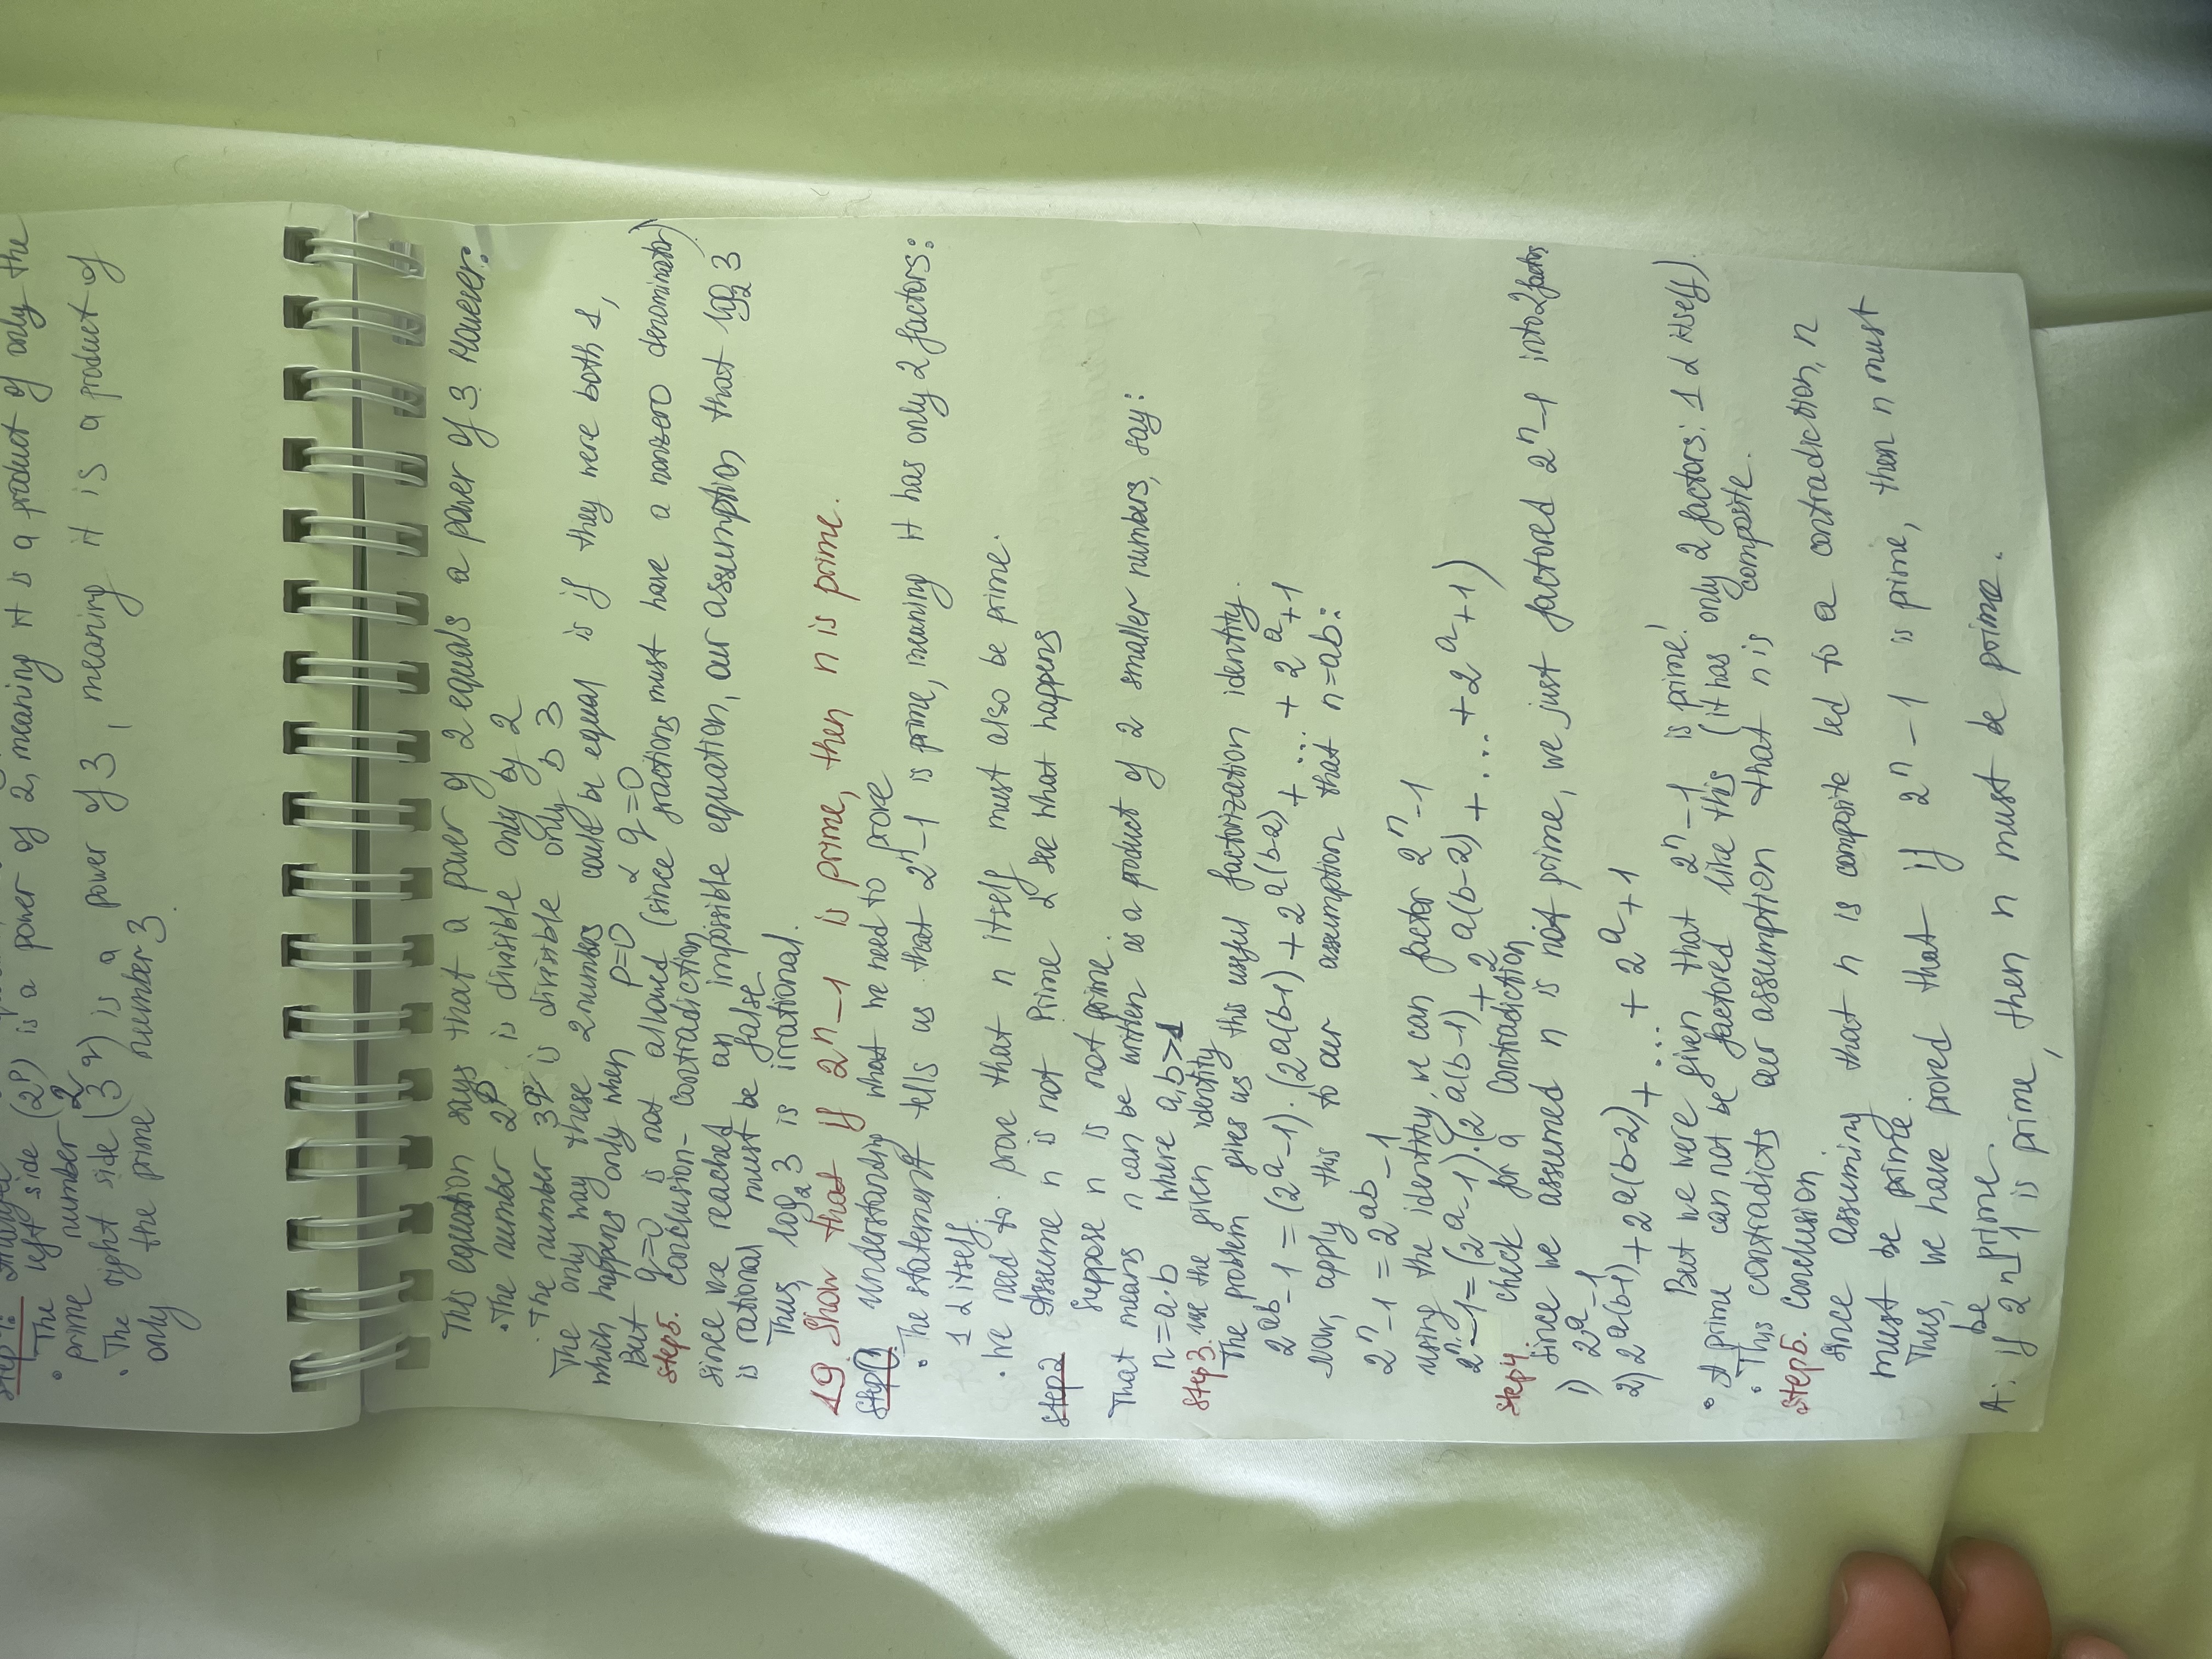 Step 4:
• The left side (2^p) is a power of 2, meaning it is a product of only the
prime number 2
• The right side (3^q) is a power of 3, meaning it is a product of
only the prime number 3.
This equation says that a power of 2 equals a power of 3. However:
• The number 2^p is divisible only by 2
• The number 3^q is divisible only b 3
The only way these 2 numbers could be equal is if they were both 1,
which happens only when p=0 & q=0
But q=0 is not allowed (since fractions must have a nonzero denominator)
Step 5. Conclusion - Contradiction
since we reached an impossible equation, our assumption that log₂ 3
is rational must be false.
Thus, log₂ 3 is irrational.
19. Show that if 2^n - 1 is prime, then n is prime.
Step 1 Understanding what we need to prove
• The statement tells us that 2^n - 1 is prime, meaning it has only 2 factors:
1 & itself.
• We need to prove that n itself must also be prime.
Step 2 Assume n is not Prime & see what happens
Suppose n is not prime.
That means n can be written as a product of 2 smaller numbers, say:
n = a·b where a,b>1
Step 3. use the given identity
The problem gives us this useful factorization identity.
2^ab - 1 = (2^a - 1)·(2^a(b-1) + 2^a(b-2) + ... + 2^a + 1
Now, apply this to our assumption that n=ab:
2^n - 1 = 2^ab - 1
using the identity, we can factor 2^n - 1
2^n - 1 = (2^a - 1)·(2^a(b-1) + 2^a(b-2) + ... + 2^a + 1)
Step 4. Check for a Contradiction.
Since we assumed n is not prime, we just factored 2^n - 1 into 2 factors
1) 2^a - 1
2) 2^a(b-1) + 2^a(b-2) + ... + 2^a + 1
But we were given that 2^n - 1 is prime!
• A prime can not be factored like this (it has only 2 factors: 1 & itself).
• This contradicts our assumption that n is composite.
Step 5. Conclusion
Since assuming that n is composite led to a contradiction, n
must be prime.
Thus, we have proved that if 2^n - 1 is prime, then n must
be prime.
A: if 2^n - 1 is prime, then n must be prime.